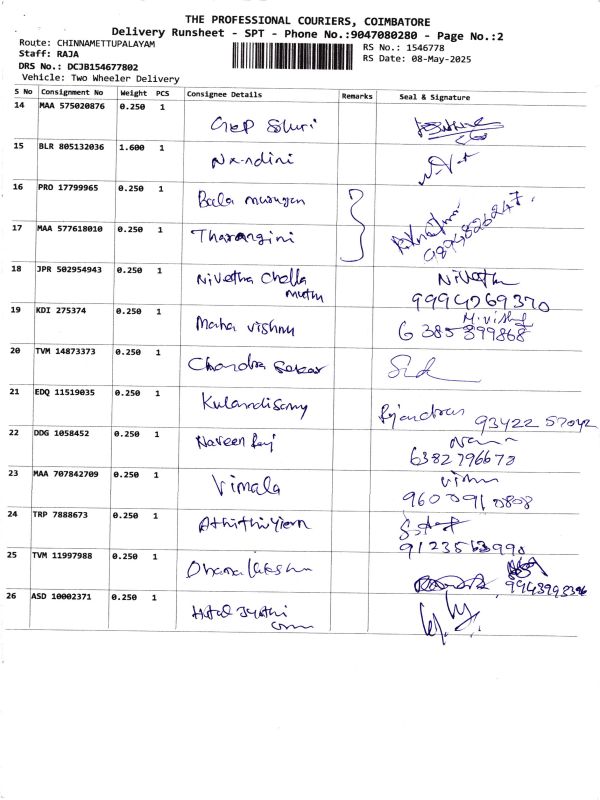 THE PROFESSIONAL COURIERS, COIMBATORE
Delivery Runsheet - SPT - Phone No.:9047080280 - Page No.:2
Route: CHINNAMETTUPALAYAM
Staff: RAJA
DRS No.: DCJB154677802
Vehicle: Two Wheeler Delivery
RS No.: 1546778
RS Date: 08-May-2025
S No Consignment No Weight PCS Consignee Details Remarks Seal & Signature
14 MAA 575020876 0.250 1
15 BLR 805132036 1.600 1 Nandini
16 PRO 17799965 0.250 1 Bala murugan
17 MAA 577618010 0.250 1 Tharangini 9894826247
18 JPR 502954943 0.250 1 Nivetha Chella muthu Nivetha 9994069370
19 KDI 275374 0.250 1 Maha vishnu 6385399868
20 TVM 14873373 0.250 1 Chandra Sekar
21 EDQ 11519035 0.250 1 Kulandisamy 93422 57042
22 DDG 1058452 0.250 1 Naveen Raj 6382796678
23 MAA 707842709 0.250 1 Vimala 9600910808
24 TRP 7888673 0.250 1 9123563990
25 TVM 11997988 0.250 1 Dhanalakshmi
26 ASD 10002371 0.250 1 Hotel Jyothi